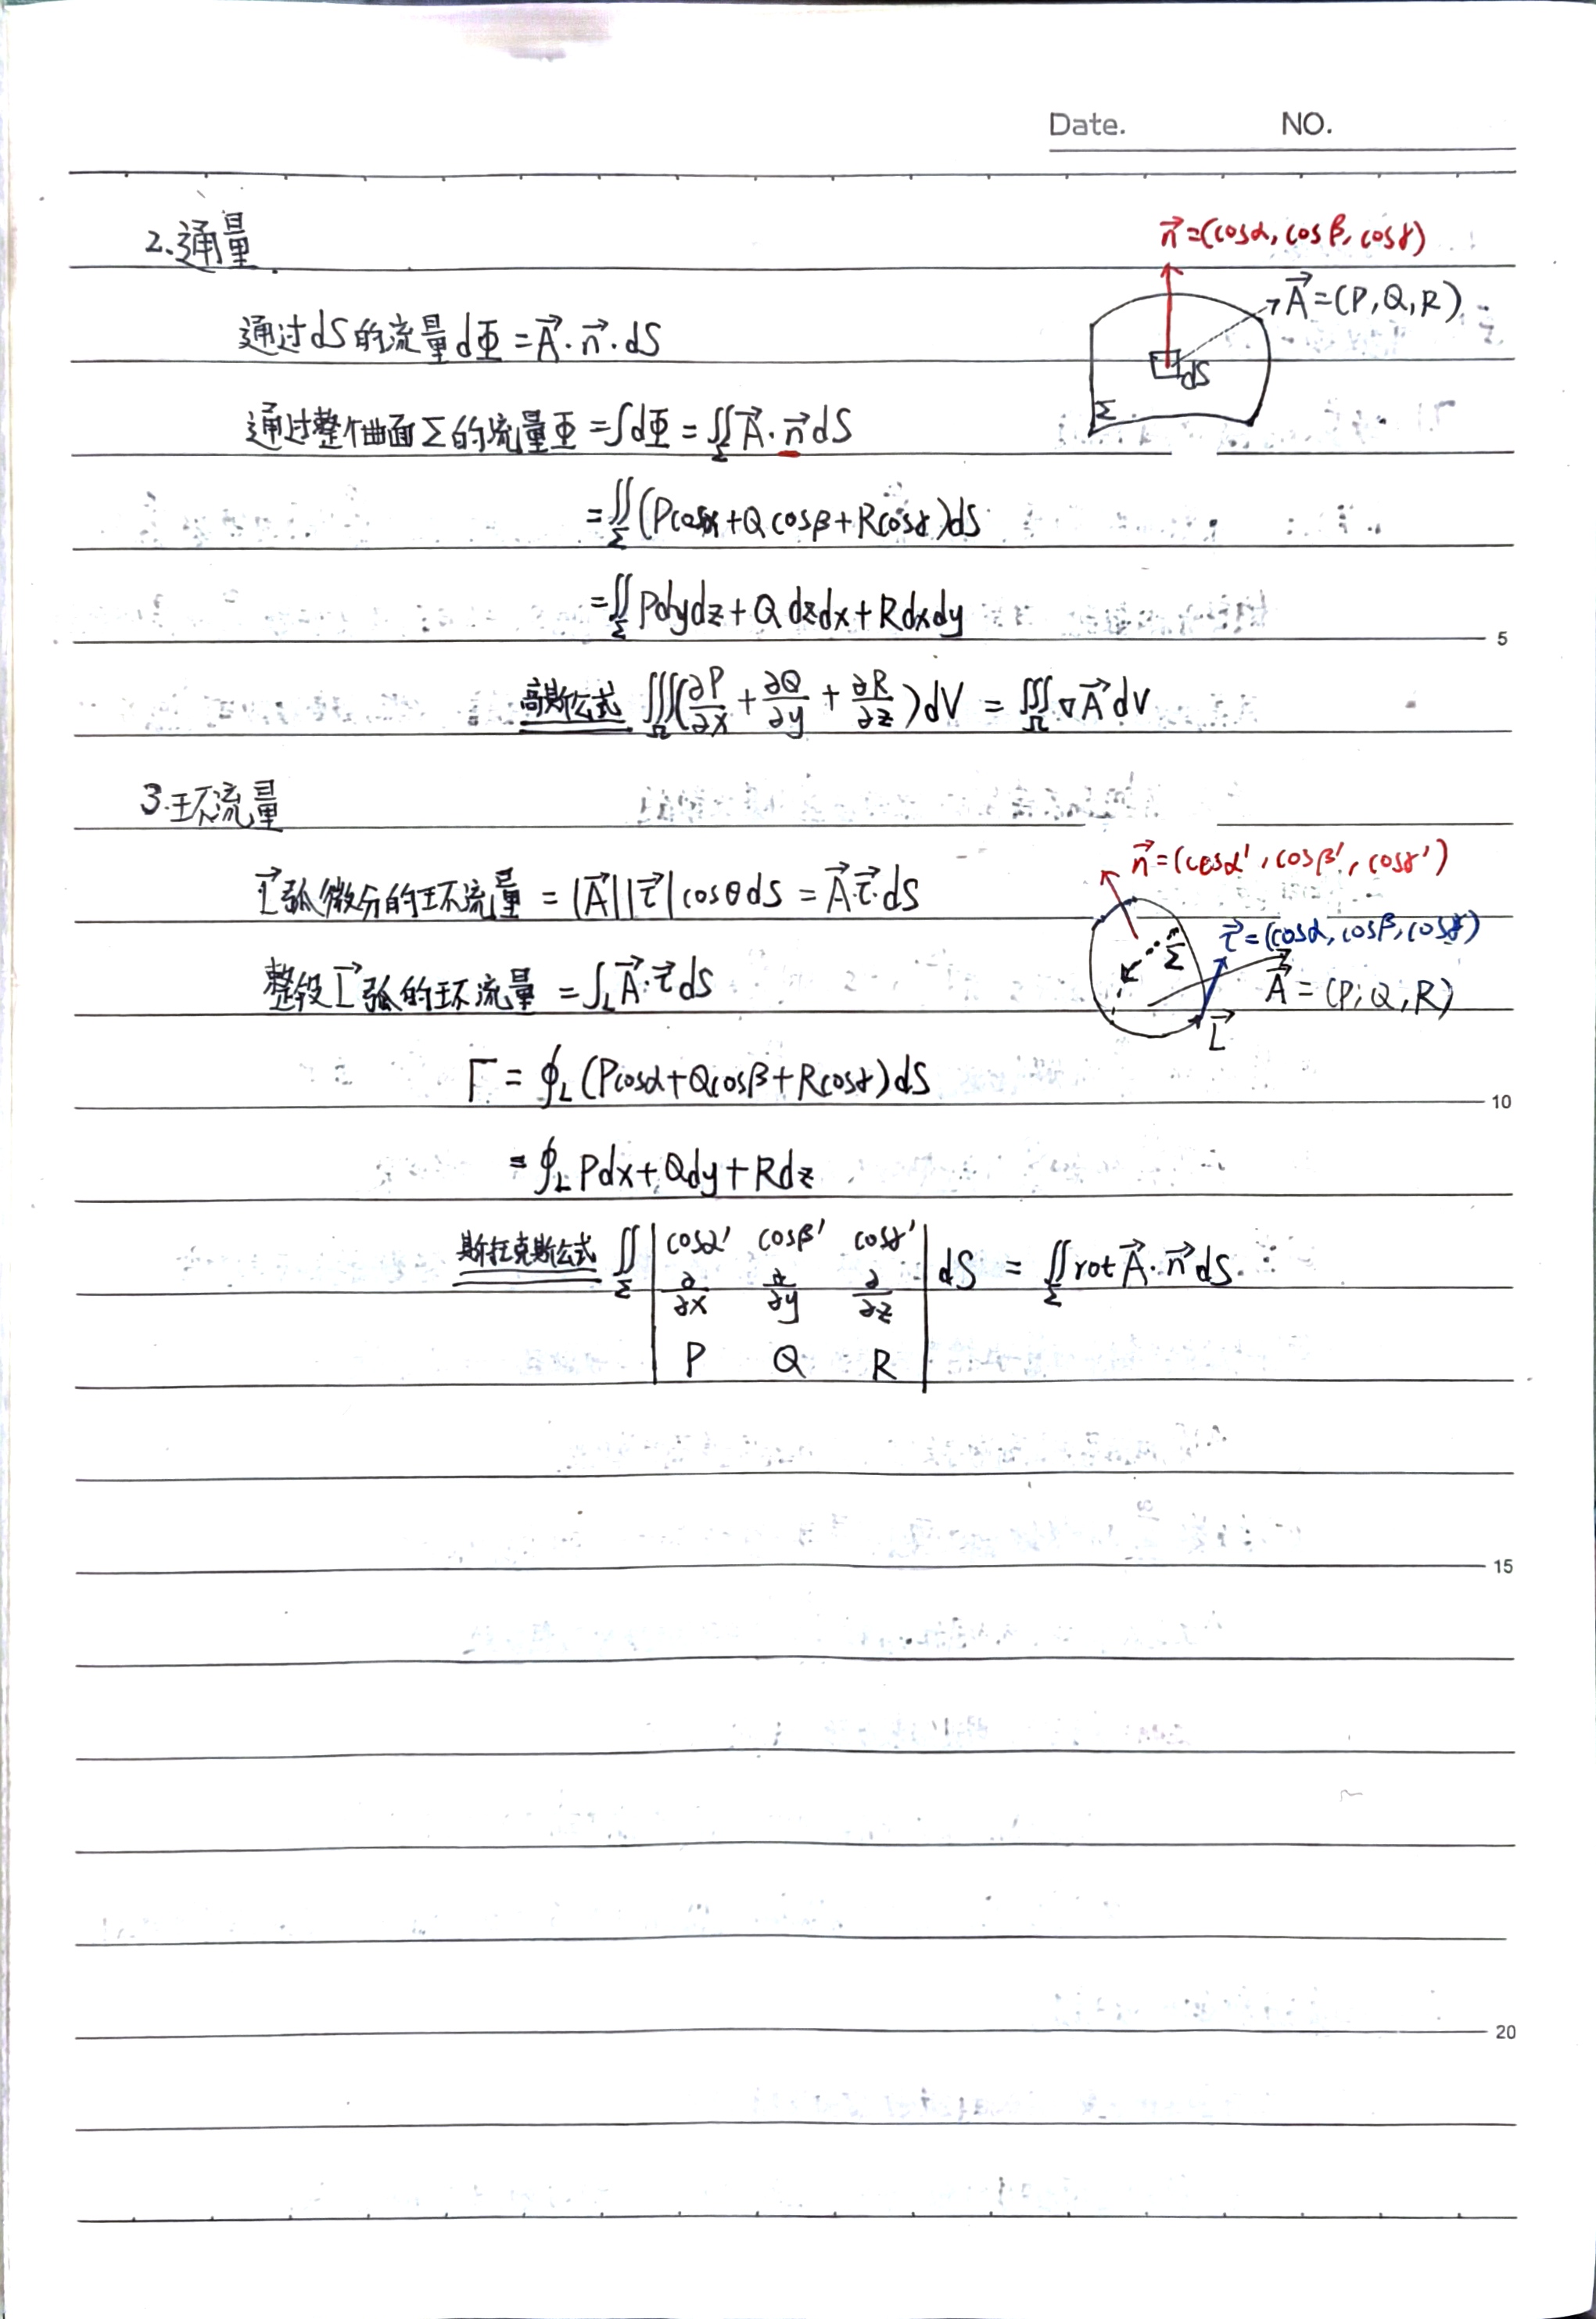 Date. NO.
2.通量
n⃗=(cosα, cosβ, cosγ)
A⃗=(P,Q,R)
dS
Σ
通过dS的流量dΦ=A⃗·n⃗·dS
通过整个曲面Σ的流量Φ=∫dΦ=∬_Σ A⃗·n⃗dS
=∬_Σ (Pcosα+Qcosβ+Rcosγ)dS
=∬_Σ Pdydz+Qdzdx+Rdxdy
5
高斯公式 ∭_Ω(∂P/∂x+∂Q/∂y+∂R/∂z)dV = ∭_Ω ∇A⃗dV
3.环流量
n⃗=(cosα', cosβ', cosγ')
τ⃗=(cosα, cosβ, cosγ)
Σ
A⃗=(P,Q,R)
L⃗
L⃗弧微分的环流量 = |A⃗||τ⃗|cosθdS = A⃗·τ⃗·dS
整段L⃗弧的环流量 = ∫_L A⃗·τ⃗dS
Γ = ∮_L (Pcosα+Qcosβ+Rcosγ)dS
10
= ∮_L Pdx+Qdy+Rdz
斯托克斯公式 ∬_Σ | cosα' cosβ' cosγ' | dS = ∬_Σ rotA⃗·n⃗dS
∂/∂x ∂/∂y ∂/∂z
P Q R
15
20